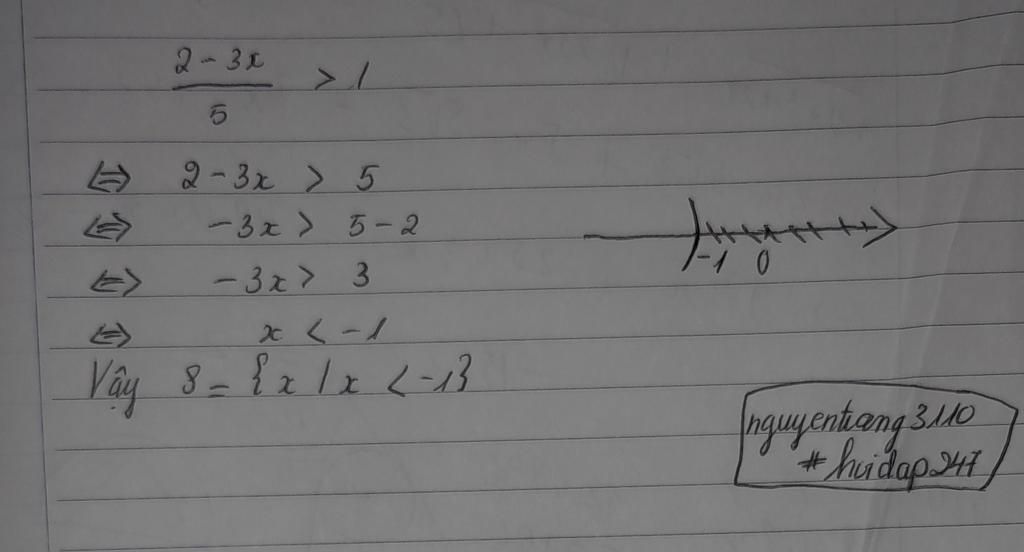 2 - 3x
5
> 1
⇔ 2 - 3x > 5
⇔ -3x > 5 - 2
⇔ -3x > 3
⇔ x < -1
-1 0
Vậy S = {x / x < -1}
nguyentrang3110
# hoidap247